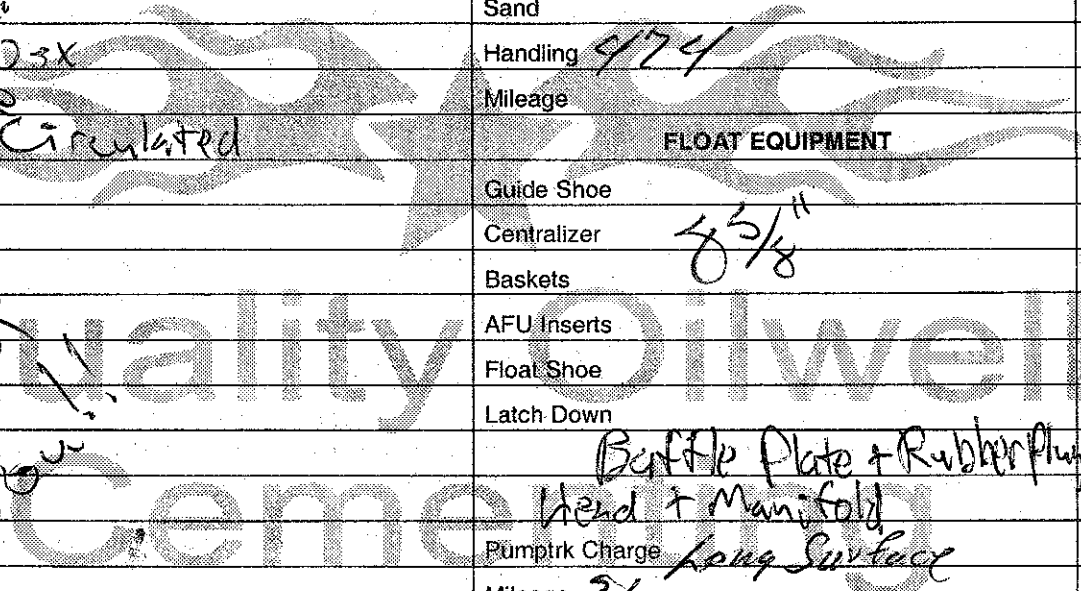 Sand
Handling 474
Mileage
Circulated
FLOAT EQUIPMENT
Guide Shoe
Centralizer 8 5/8"
Baskets
AFU Inserts
Float Shoe
Latch Down
Baffle Plate + Rubber plug
Head + Manifold
Pumptrk Charge Long Surface
Mileage
uality Oilwell
Cementing